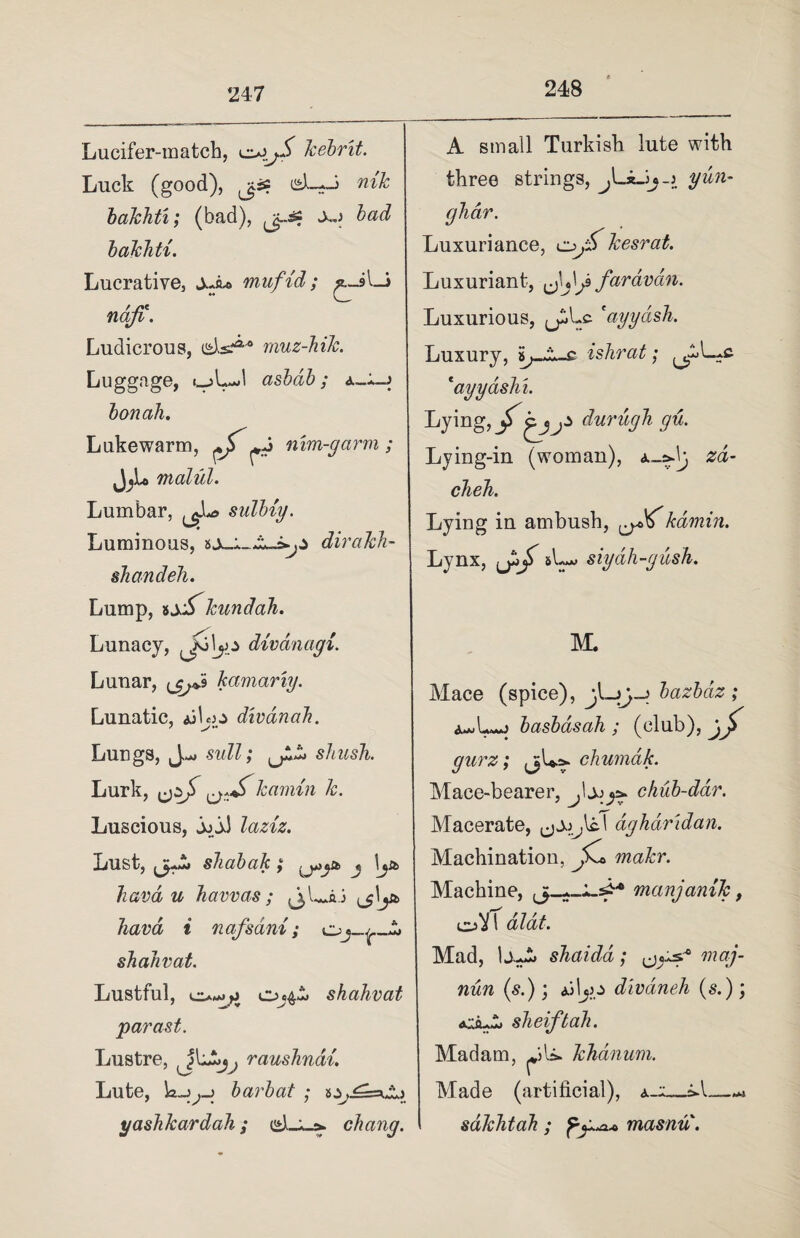 247
Lucifer-match, کبریت kebrīt.
Luck (good), نیک بختی nīk
bakhtī; (bad), بد بختی bad
bakhtī.
Lucrative, مفید mufīd; نافع
nāfiʿ.
Ludicrous, مضحک muz-hik.
Luggage, اسباب asbāb; بنه
bonah.
Lukewarm, نیم گرم nīm-garm;
ملول malūl.
Lumbar, صلبی sulbīy.
Luminous, درخشنده dirakh-
shandeh.
Lump, کنده kundah.
Lunacy, دیوانگی dīvānagī.
Lunar, قمری kamarīy.
Lunatic, دیوانه dīvānah.
Lungs, سل sull; شش shush.
Lurk, کمین کردن kamīn k.
Luscious, لذیذ lazīz.
Lust, شبق shabak; هوا و هوس
havā u havvas; هوای نفسانی
havā i nafsānī; شهوت
shahvat.
Lustful, شهوت پرست shahvat
parast.
Lustre, روشنائی raushnāī.
Lute, بربط barbat; یشکرده
yashkardah; چنگ chang.
248
A small Turkish lute with
three strings, یونغار yūn-
ghār.
Luxuriance, کثرت kesrat.
Luxuriant, فراوان farāvān.
Luxurious, عیاش ʿayyāsh.
Luxury, عشرة ishrat; عیاشی
ʿayyāshī.
Lying, دروغ گو durūgh gū.
Lying-in (woman), زاچه zā-
cheh.
Lying in ambush, کامن kāmin.
Lynx, سیاه گوش siyāh-gūsh.
M.
Mace (spice), بزباز bazbāz;
بسباسه basbāsah; (club), گرز
gurz; چماق chumāk.
Mace-bearer, چوبدار chūb-dār.
Macerate, آغاریدن āghārīdan.
Machination, مکر makr.
Machine, منجنیق manjanīk,
آلات ālāt.
Mad, شیدا shaidā; مجنون maj-
nūn (s.); دیوانه dīvāneh (s.);
شیفته sheiftah.
Madam, خانم khānum.
Made (artificial), ساخته
sākhtah; مصنوع masnūʿ.